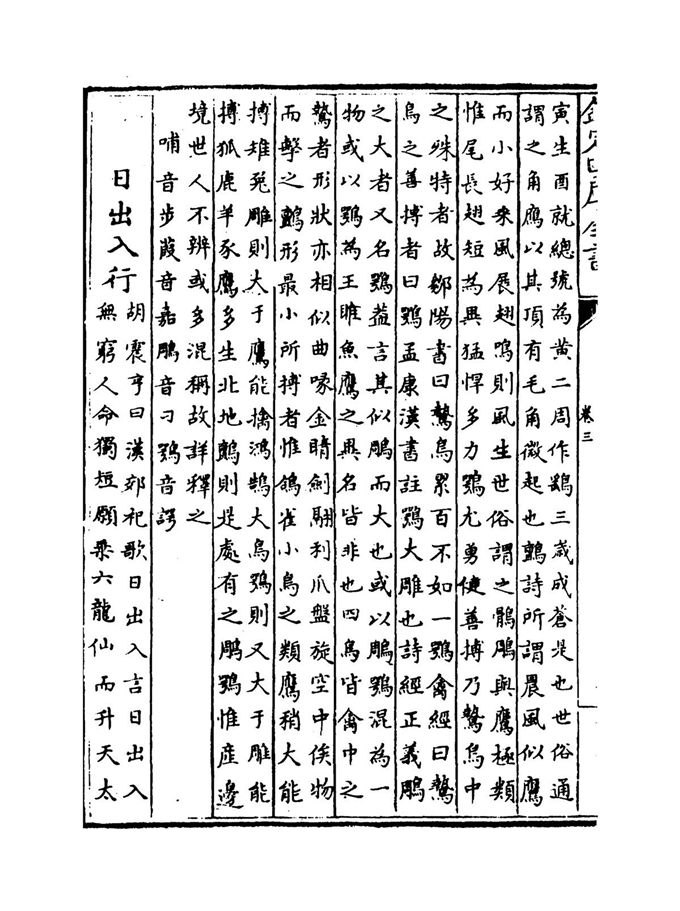 欽定四庫全書
卷三
寅生酉就總號為黄二周作鷂三歲成蒼是也世俗通
謂之角鷹以其頂有毛角微起也鸇詩所謂晨風似鷹
而小好乘風展翅鳴則風生世俗謂之鶻鵰與鷹極類
惟尾長翅短為異猛悍多力鶚尤勇健善搏乃鷙鳥中
之殊特者故鄒陽書曰鷙鳥累百不如一鶚禽經曰鷙
鳥之善搏者曰鶚孟康漢書註鶚大雕也詩經正義鵰
之大者又名鶚葢言其似鵰而大也或以鵰鶚混為一
物或以鶚為王雎魚鷹之異名皆非也四鳥皆禽中之
鷙者形狀亦相似曲喙金睛劍翮利爪盤旋空中俟物
而擊之鸇形最小所搏者惟鴿雀小鳥之類鷹稍大能
搏雉兎雕則大于鷹能擒鴻鵠大鳥鶚則又大于雕能
搏狐鹿羊豕鷹多生北地鸇則是處有之鵰鶚惟産邊
境世人不辨或多混稱故詳釋之
哺音步葭音嘉鵰音刁鶚音諤
日出入行
胡震亨曰漢郊祀歌日出入言日出入
無窮人命獨短願乘六龍仙而升天太